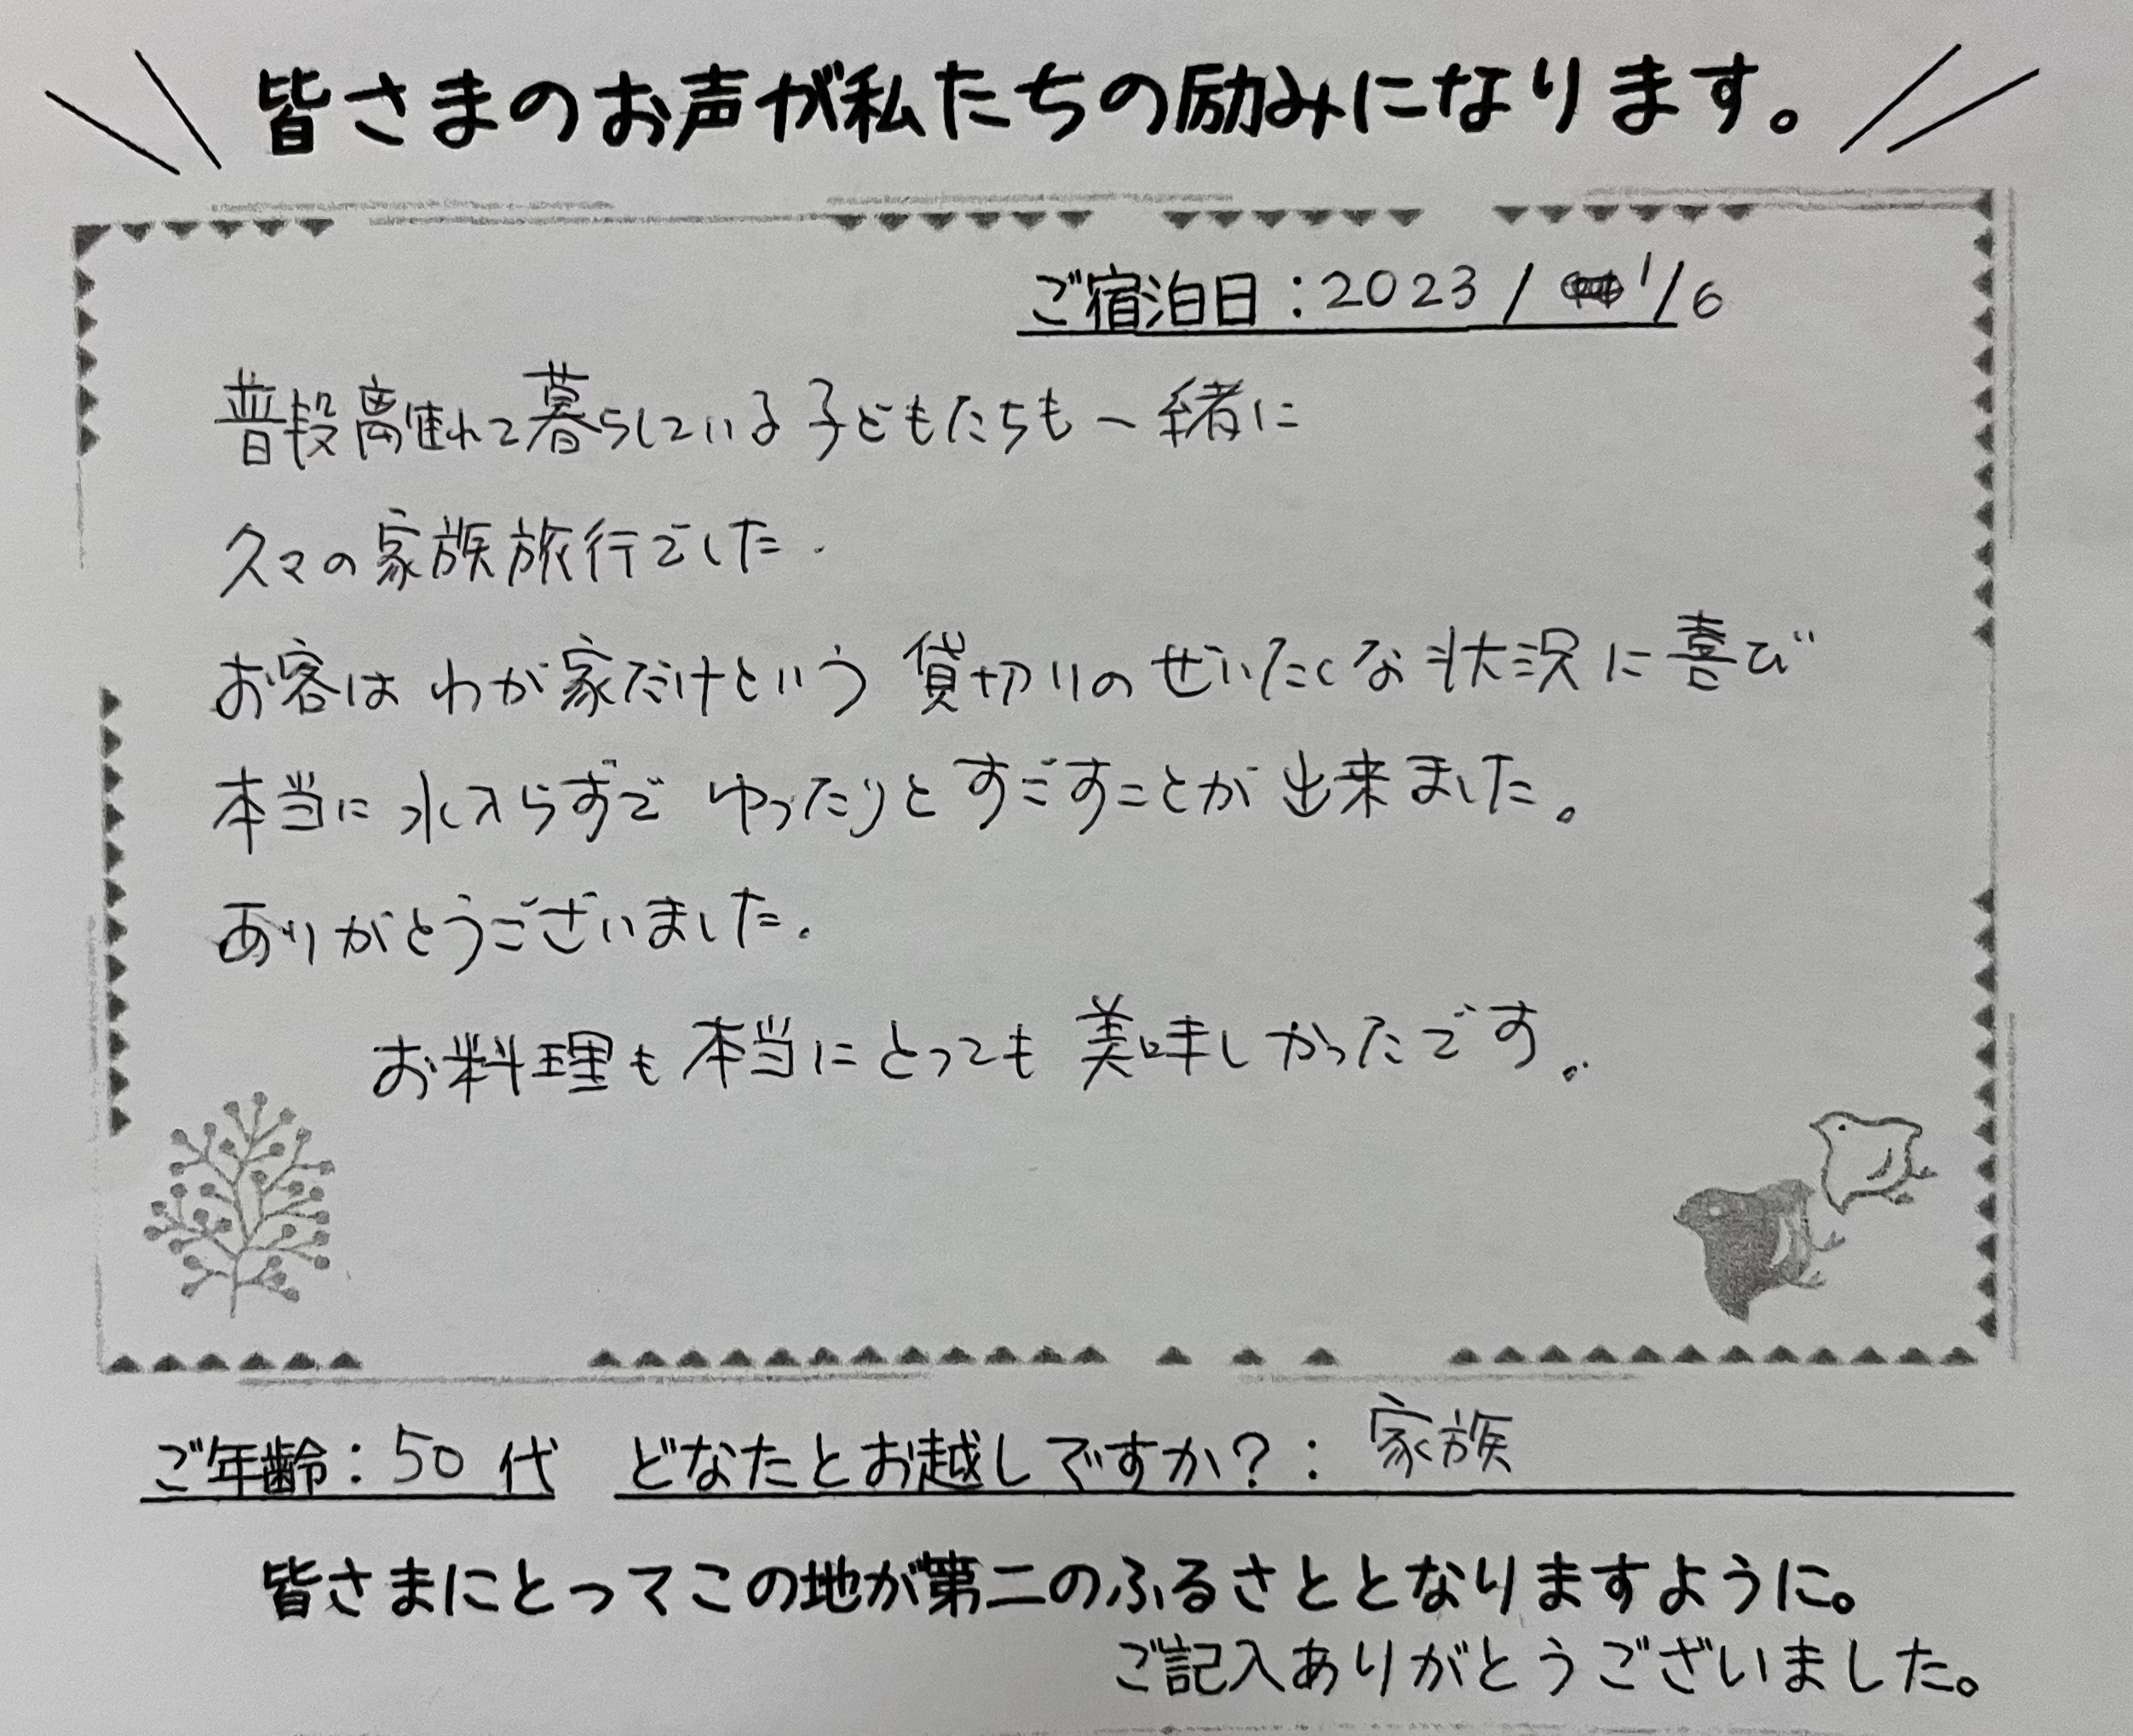 皆さまのお声が私たちの励みになります。
ご宿泊日：2023 / 1/6
普段離れて暮らしている子どもたちも一緒に
久々の家族旅行でした.
お客はわが家だけという貸切りのぜいたくな状況に喜び
本当に水入らずでゆったりとすごすことが出来ました。
ありがとうございました.
お料理も本当にとっても美味しかったです。
ご年齢：50代 どなたとお越しですか？：家族
皆さまにとってこの地が第二のふるさととなりますように。
ご記入ありがとうございました。